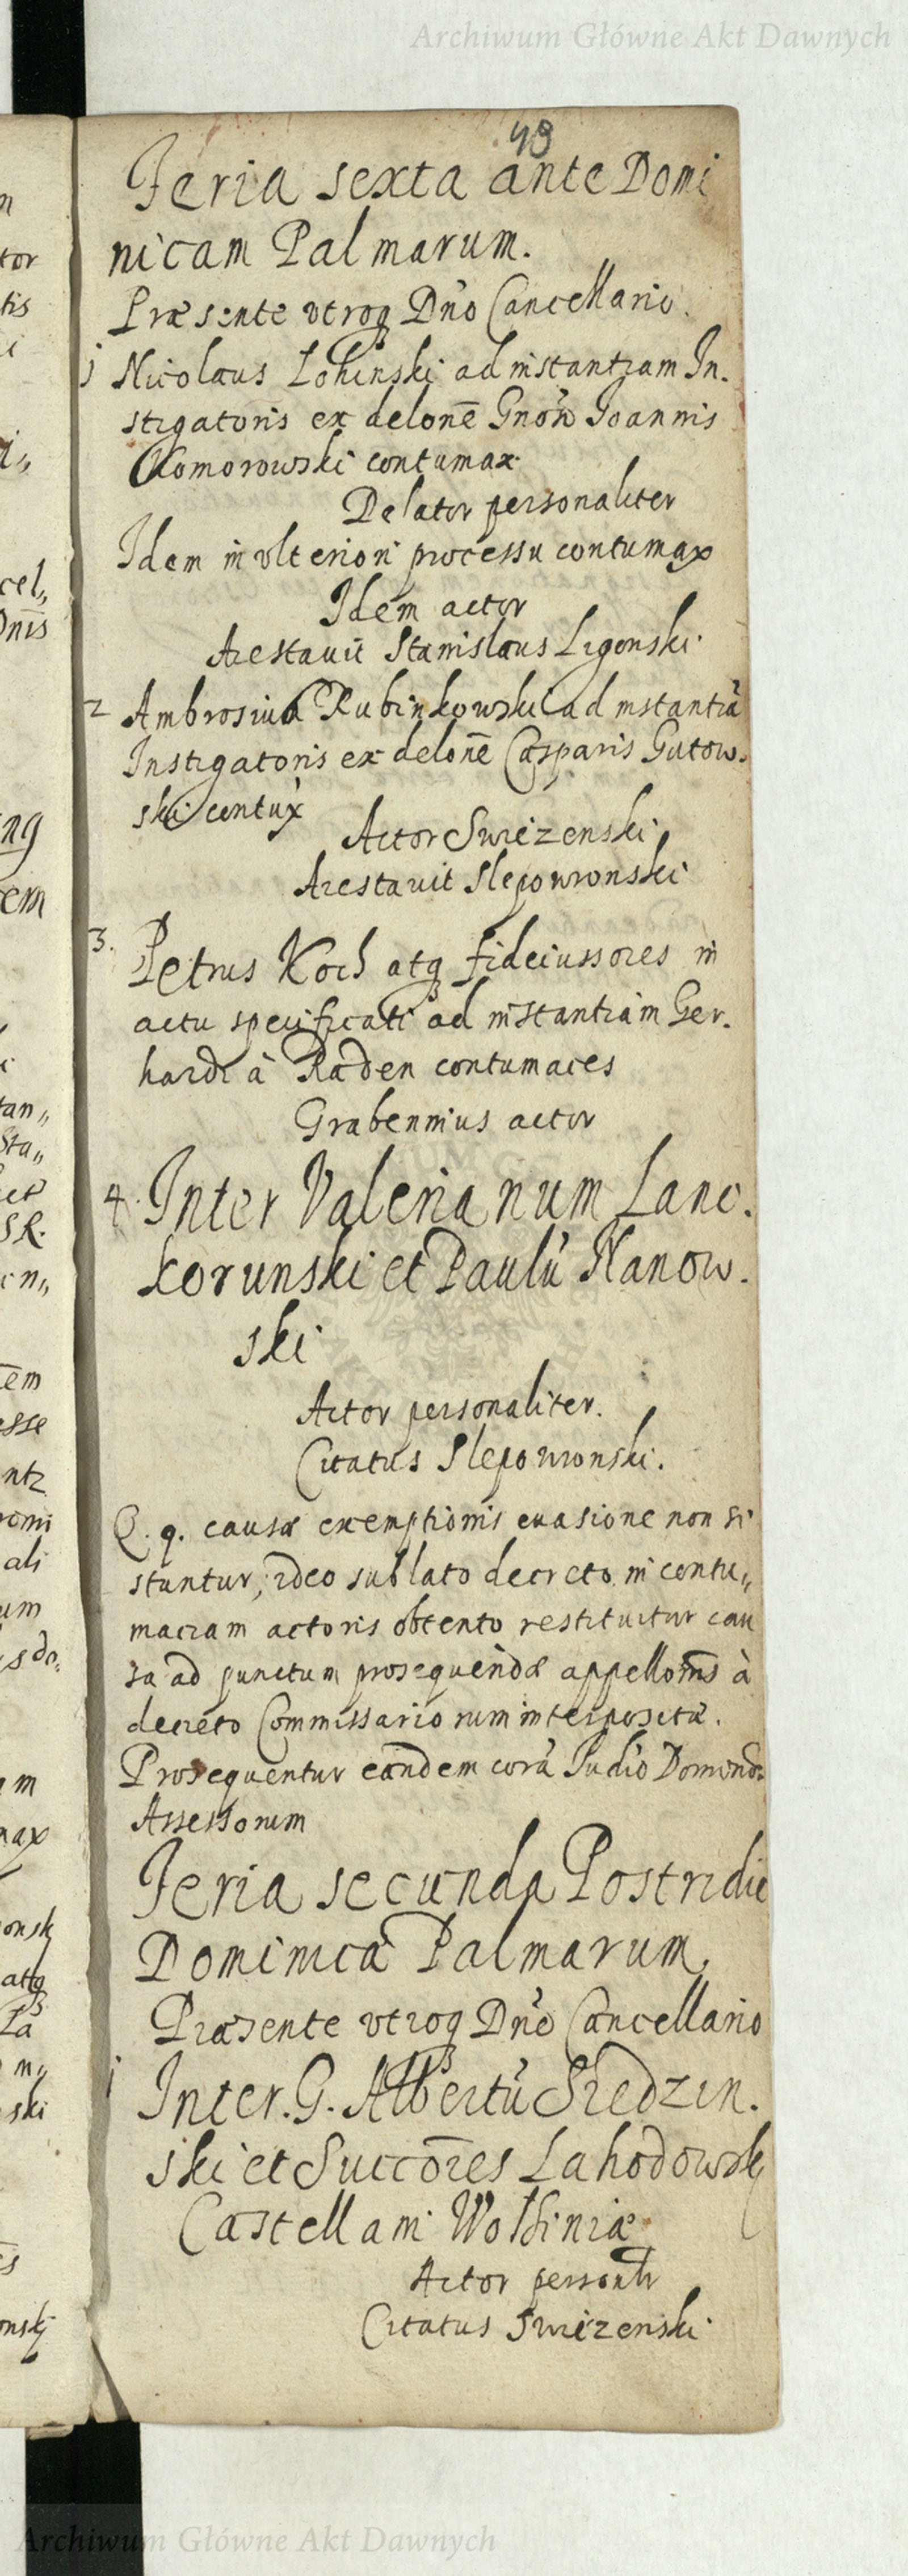 Archiwum Główne Akt Dawnych
49
Feria sexta ante Domi
nicam Palmarum.
Præsente utroq Dno Cancellario.
1 Nicolaus Lohinski ad instantiam In.
stigatoris ex delonē Gnōr Joannis
Komorowski contumax.
Delator personaliter
Idem in ulteriori processu contumax
Idem actor
Arestavit Stanislaus Ligonski.
2 Ambrosius Rubinkowski ad instantiā
Instigatoris ex delonē Casparis Gutow.
ski contux
Actor Swiezenski.
Arestavit Slepowronski
3. Petrus Koch atq fideiussores in
actu specificati ad instantiam Ger.
hardi à Raden contumaces
Grabennius actor
4. Inter Valerianum Lanc.
korunski et Paulū Hanow.
ski
Actor personaliter.
Citatus Slepowronski.
Q. q. causæ exemptionis evasione non si
stuntur, ideo sublato decreto in contu„
maciam actoris obtento restituitur cau
sa ad punctum prosequendæ appellonis à
decreto Commissariorum interpositæ.
Prosequentur eandem corā Judio Domino
Assessorum
Feria secunda Postridie
Dominicā Palmarum,
Præsente utroq Dno Cancellario
1 Inter. G. Albertū Siedzin.
ski et Succōres Lahodowsky
Castellani Wolhiniæ
Actor personlr
Citatus Swiezenski
Archiwum Główne Akt Dawnych